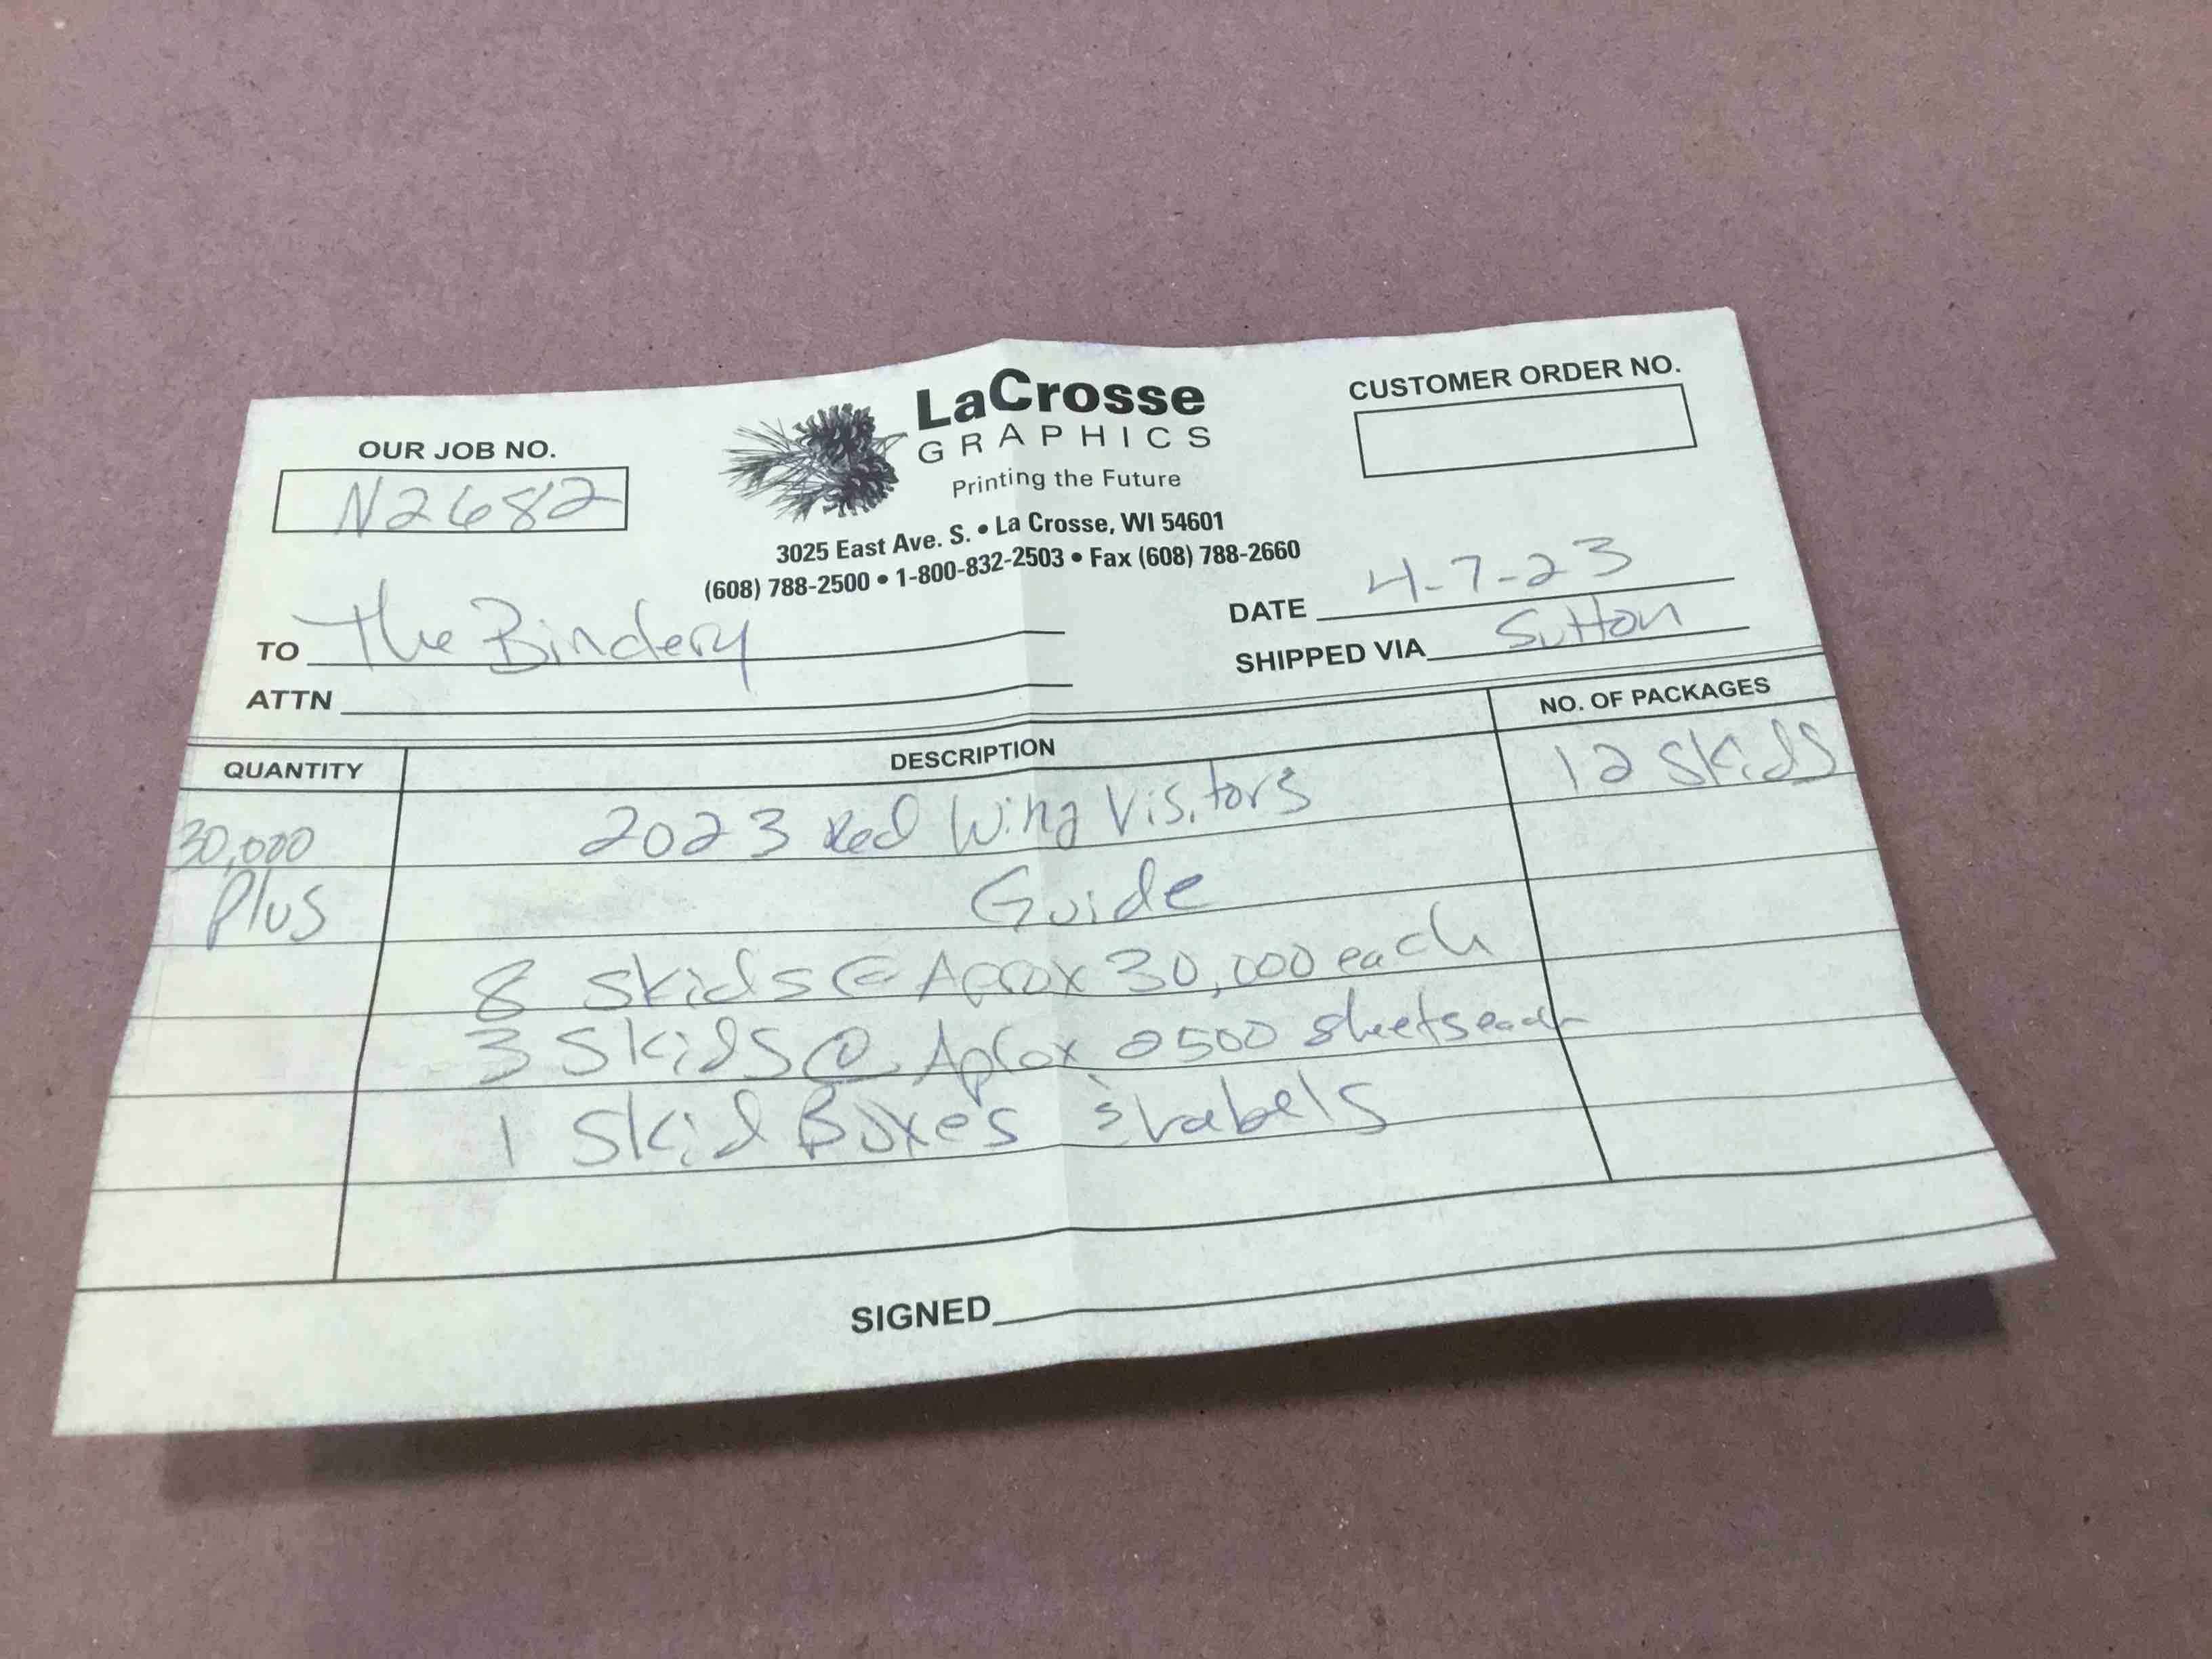 OUR JOB NO.
N2682
LaCrosse
GRAPHICS
Printing the Future
3025 East Ave. S. • La Crosse, WI 54601
(608) 788-2500 • 1-800-832-2503 • Fax (608) 788-2660
CUSTOMER ORDER NO.
DATE 4-7-23
SHIPPED VIA Sutton
TO The Bindery
ATTN
QUANTITY DESCRIPTION NO. OF PACKAGES
30,000 2023 Red Wing Visitors 12 Skids
Plus Guide
8 Skids @ Aprox 30,000 each
3 Skids @ Aprox 2500 sheets each
1 Skid Boxes & Labels
SIGNED